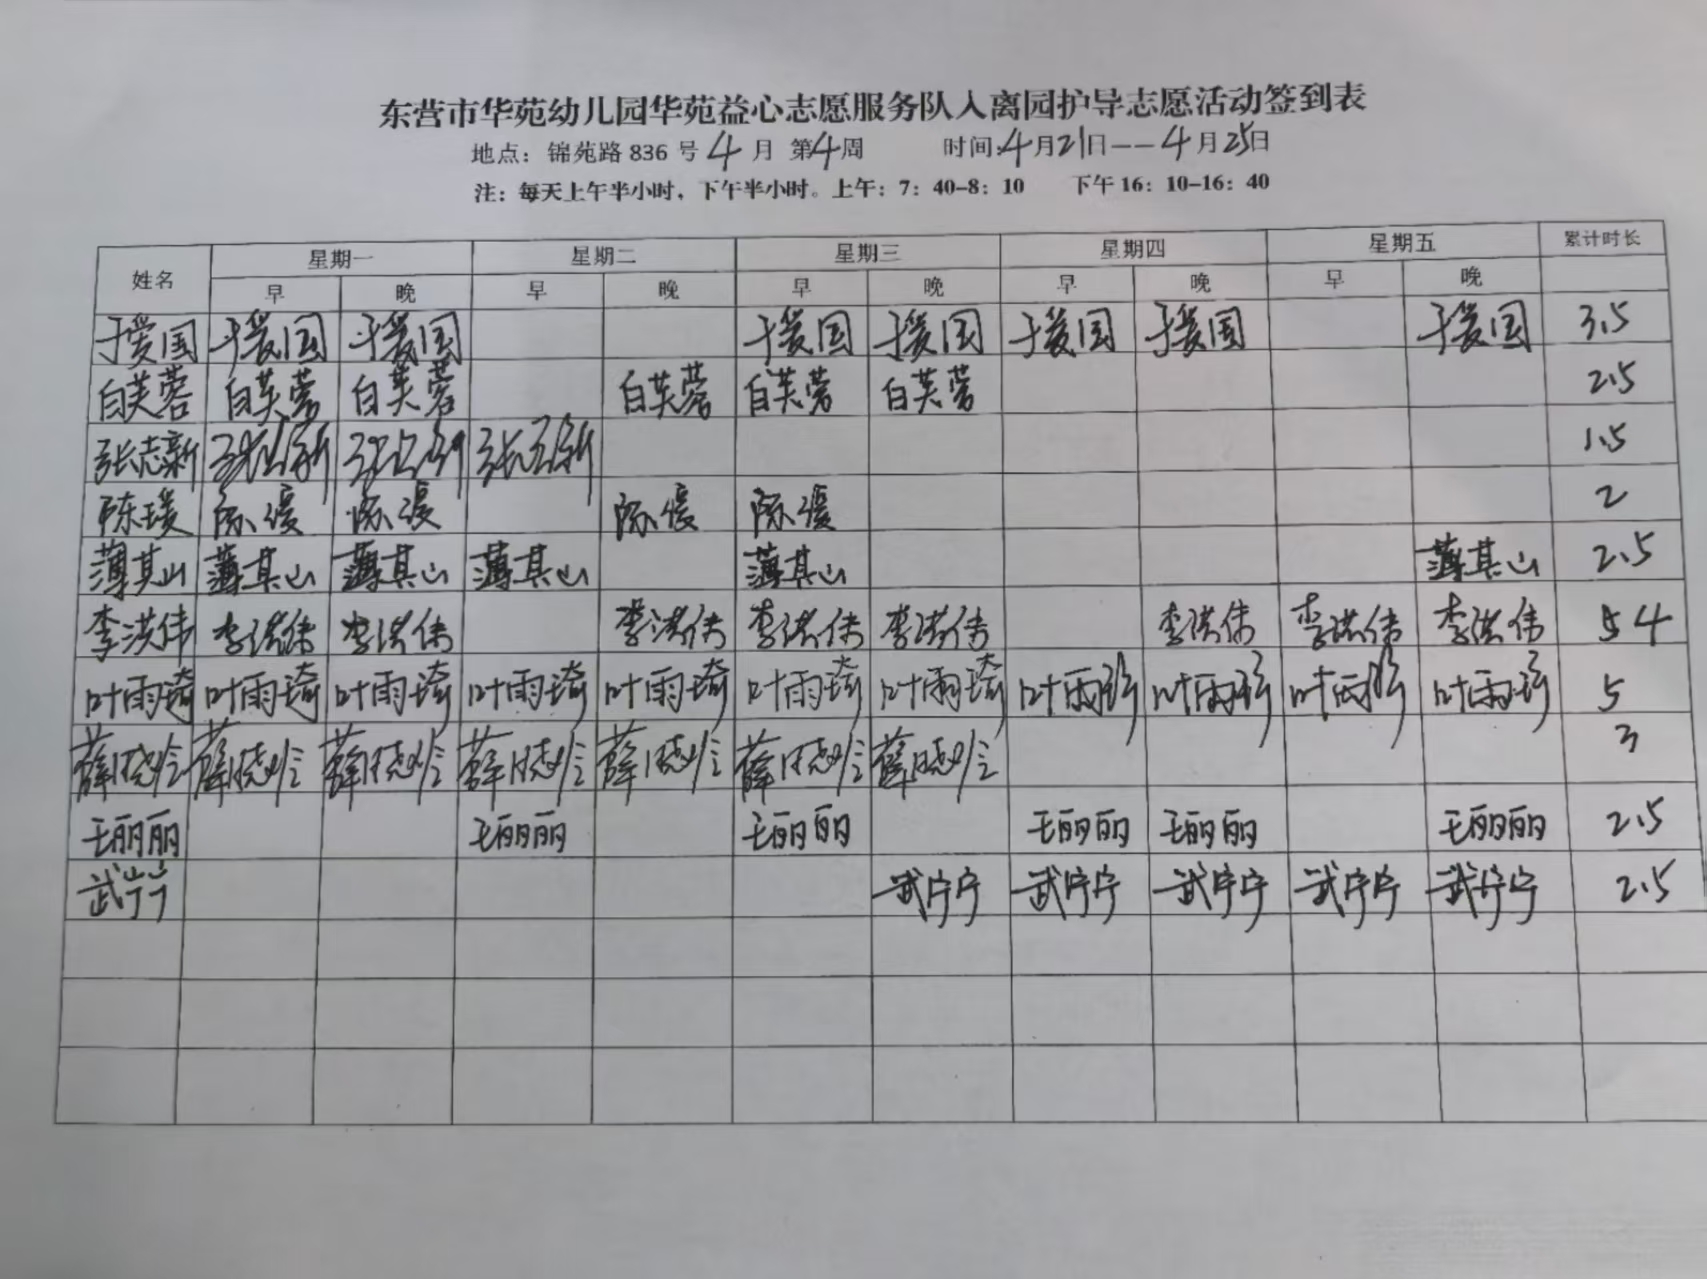 东营市华苑幼儿园华苑益心志愿服务队入离园护导志愿活动签到表
地点：锦苑路 836 号 4 月 第4周 时间：4月21日——4月25日
注：每天上午半小时，下午半小时。上午：7：40-8：10 下午 16：10-16：40
姓名 星期一 星期二 星期三 星期四 星期五 累计时长
早 晚 早 晚 早 晚 早 晚 早 晚
于爱国 于爱国 于爱国 于爱国 于爱国 于爱国 于爱国 于爱国 3.5
白芙蓉 白芙蓉 白芙蓉 白芙蓉 白芙蓉 白芙蓉 2.5
张志新 张志新 张志新 张志新 1.5
陈瑗 陈瑗 陈瑗 陈瑗 陈瑗 2
薄其山 薄其山 薄其山 薄其山 薄其山 薄其山 2.5
李洪伟 李洪伟 李洪伟 李洪伟 李洪伟 李洪伟 李洪伟 李洪伟 李洪伟 4
叶雨琦 叶雨琦 叶雨琦 叶雨琦 叶雨琦 叶雨琦 叶雨琦 叶雨琦 叶雨琦 叶雨琦 叶雨琦 5
薛晓玲 薛晓玲 薛晓玲 薛晓玲 薛晓玲 薛晓玲 薛晓玲 3
王丽丽 王丽丽 王丽丽 王丽丽 王丽丽 王丽丽 2.5
武宁宁 武宁宁 武宁宁 武宁宁 武宁宁 武宁宁 2.5